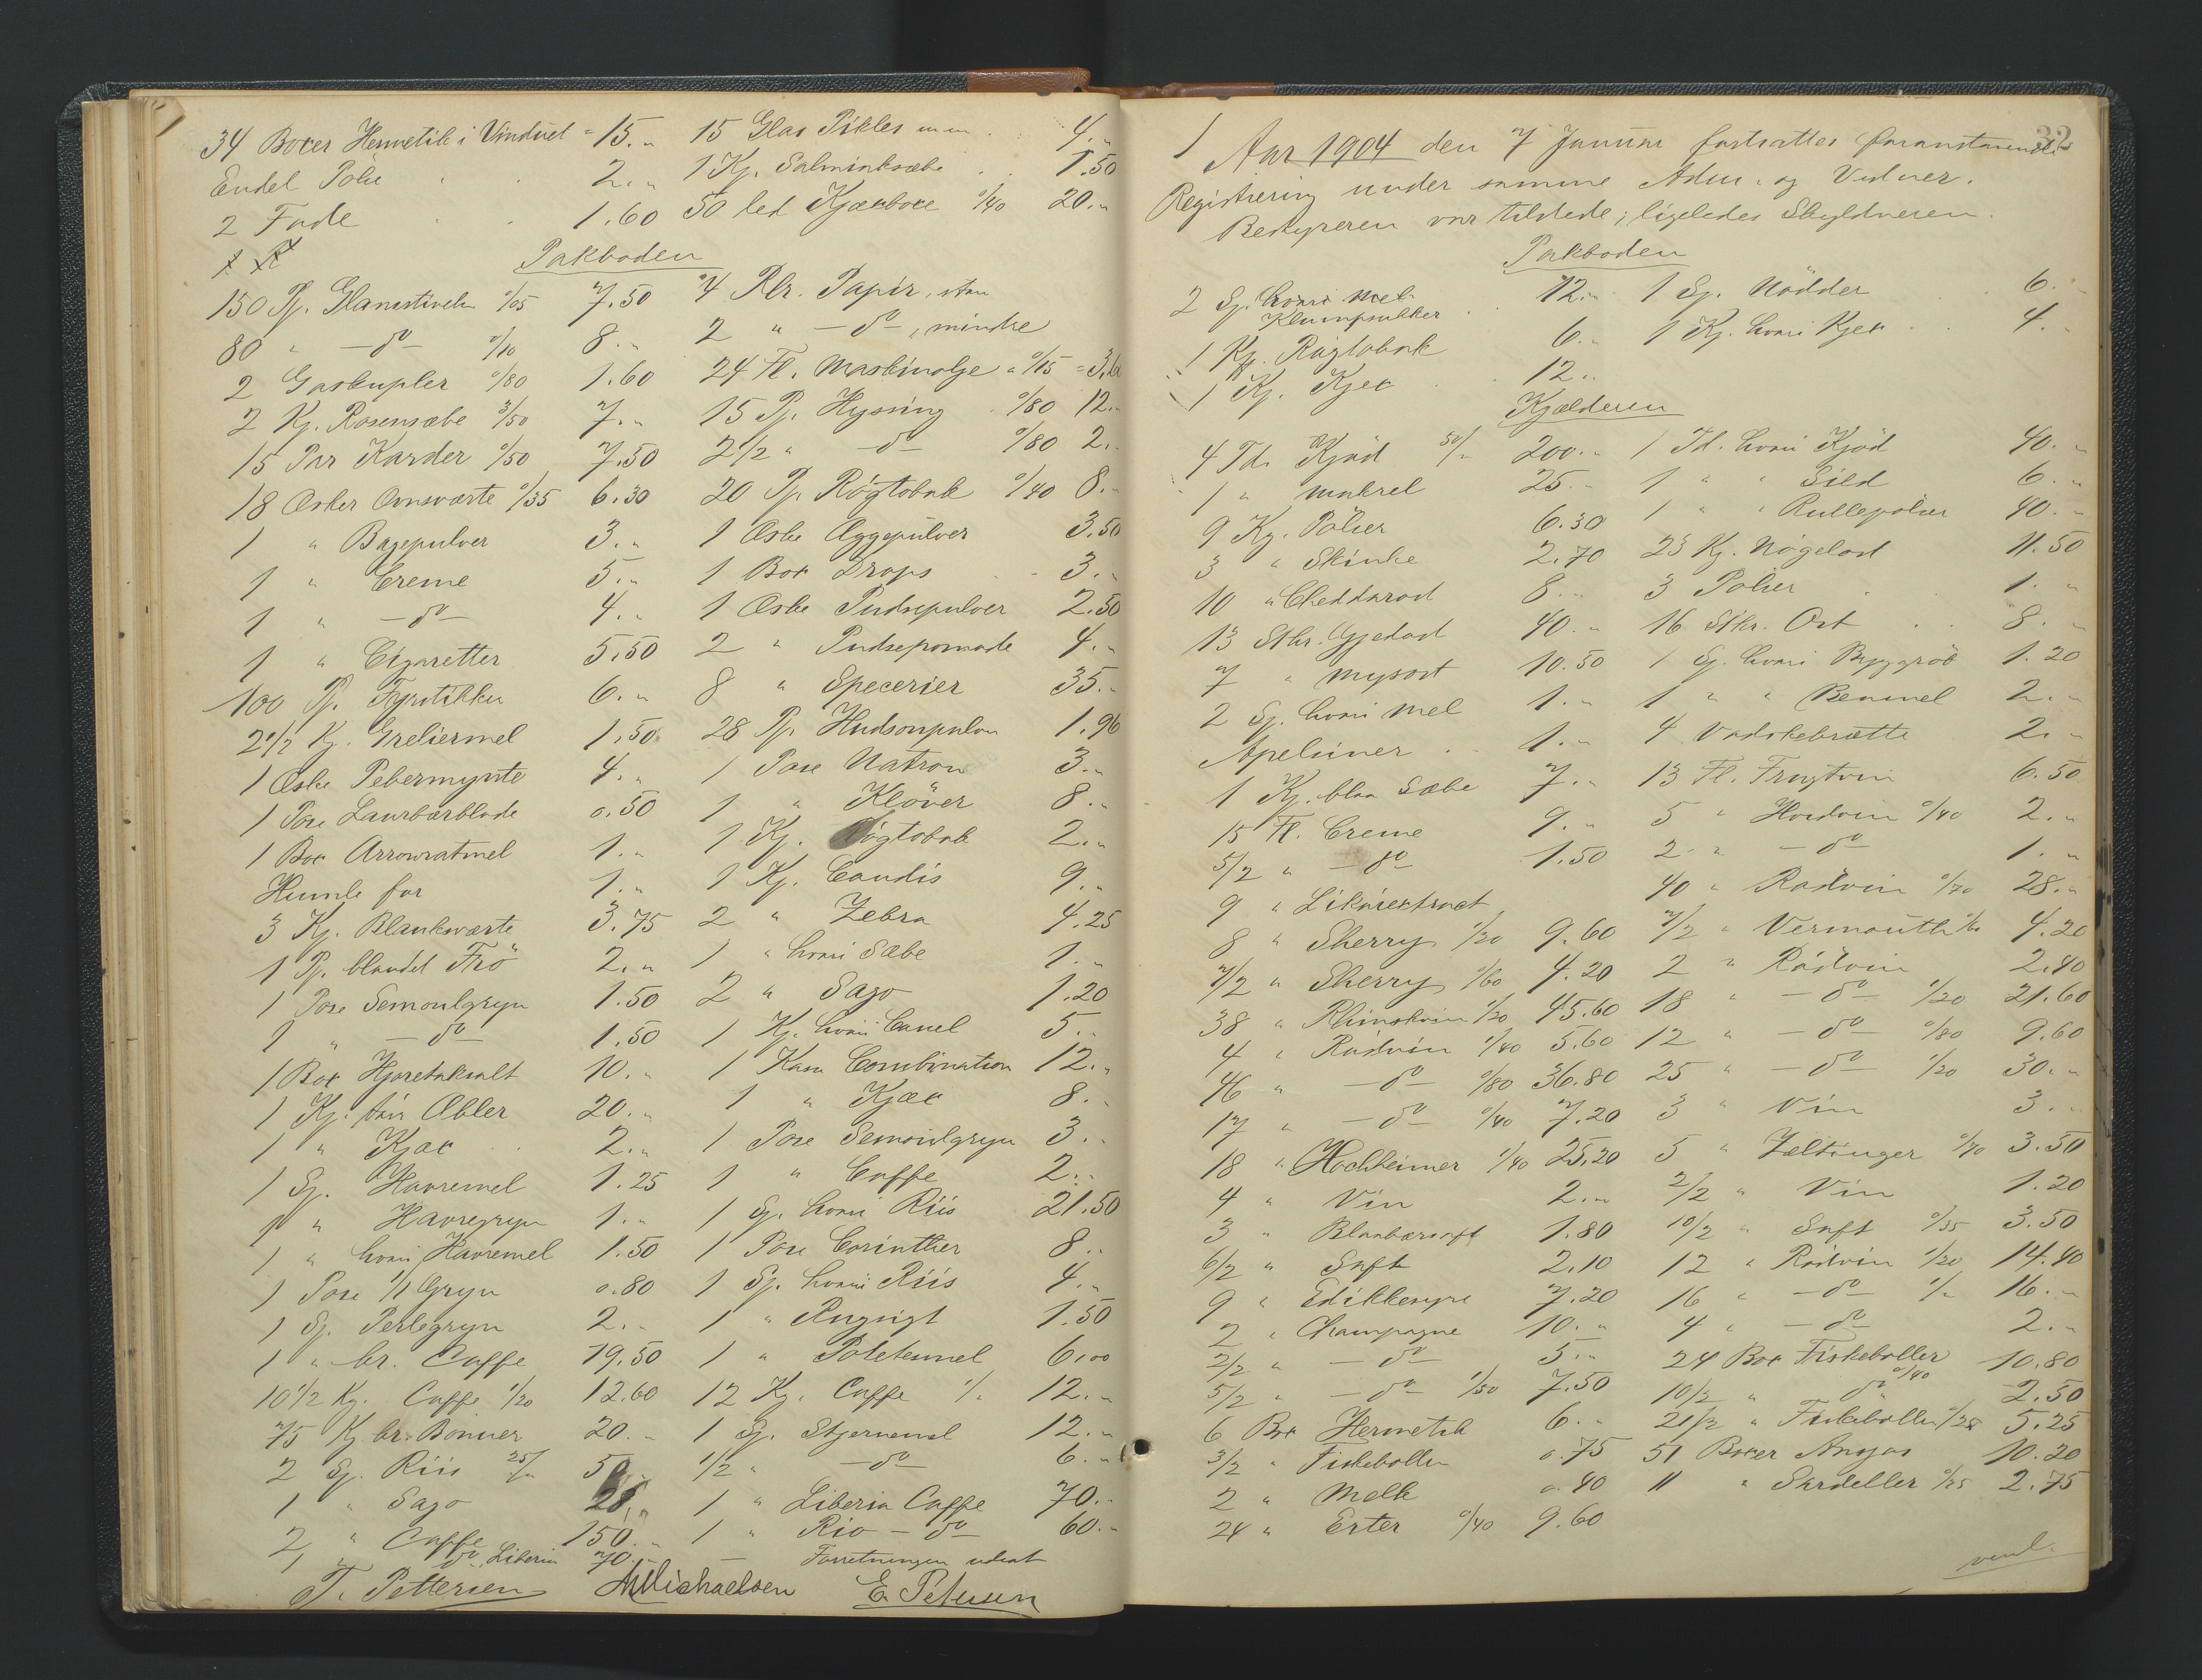 34 Boxer Hermetik i Vinduet = 15.„ 15 Glas Pikles m m . 4.„
Endel Pölse . . 2.„ 1 Kj. Salmiaksæbe . . 1.50
2 Fade . . 1.60 50 led Kjækboxe 0/40 20.„
Pakboden
150 Pj. Glansstivelse 0/05 7.50 4 Rlr. Papir, stor
80 „ — do — 0/10 8.„ 2 „ — do —, mindre
2 Gaskupler 0/80 1.60 24 Fl. Maskinolje a 0/15 = 3.60
2 Kj. Rosensæbe 3/50 7.„ 15 Pj. Hysing 0/80 12.„
15 Par Karder 0/50 7.50 2 1/2 „ do 0/80 2.„
18 Æsker Ovnsværte 0/35 6.30 20 Pj. Røgtobak 0/40 8.„
1 „ Bagepulver 3.„ 1 Æske Æggepulver 3.50
1 „ Creme 5.„ 1 Box Drops . . 3.„
1 „ — do — 4.„ 1 Æske Pudsepulver 2.50
1 „ Cigaretter 5.50 2 „ Pudsepomade 4.„
100 Pj. Fyrstikker 6.„ 8 „ Specerier 35.„
2 1/2 Kj. Greliermel 1.50 28 Pj. Hudsonpulver 1.96
1 Æske Pebermynte 4.„ 1 Pose Natron 3.„
1 Pose Laurbærblade 0.50 1 „ Klöver 8.„
1 Box Arrowratmel 1.„ 1 Kj. Røgtobak 2.„
Humle for 1.„ 1 Kj. Candis 9.„
3 Kj. Blanksværte 3.75 2 „ Zebra 4.25
1 Pj. blandet Frö 2.„ 1 „ hvori Sæbe 1.„
1 Pose Semoulgryn 1.50 2 „ Sago 1.20
1 „ — do — 1.50 1 Kj. hvori Canel 5.„
1 Box Hjoretaksalt 10.„ 1 Kasse Combination 12.„
1 Kj. tör Æbler 20.„ 1 „ Kjæx 8.„
1 „ Kjæx . . 2.„ 1 Pose Semoulgryn 3.„
1 Sj. Havremel 1.25 1 „ Caffe 2.„
1 „ Havregryn 1.„ 1 Sj. hvori Riis 21.50
1 „ hvori Havremel 1.50 1 Pose Corinther 8.„
1 Pose 1/1 Gryn 0.80 1 Sj. hvori Riis 4.„
1 Sj. Perlegryn 2.„ 1 „ Rugsigt 1.50
1 „ br. Caffe 19.50 1 „ Potetesmel 6.00
10 1/2 Kg. Caffe 1/20 12.60 12 Kg. Caffe 1/„ 12.„
75 Kj. br. Bönner 20.„ 1 Sj. Stjernemel 12.„
2 Sj. Riis 25/„ 50.„ 1/2 „ — do — 6.„
1 „ Sago 28.„ 1 „ Liberia Caffe 70.„
2 „ Caffe 150.„ 1 „ Rio — do 60.„
1 „ do, Liberia 70.„ — Forretningen udsat
T. Pettersen AMichaelsen E. Petersen
32
Aar 1904 den 7 Januar fortsattes foranstaaende
Registrering under samme Adm. og Vidner.
Bestyreren var tilstede; ligeledes Skyldneren.
Pakboden
2 Sj. hvori Mel . 12.„ 1 Sj. Nödder . . 6.„
Klumpsukker
1 Kj. Røgtobak 6.„ 1 Kj. hvori Kjex . . 4.„
1 Kj. Kjex . . 12.„
Kjælderen
4 Td. Kjöd 50/„ 200.„ 1 Td. hvori Kjöd 40.„
1 „ Makrel 25.„ 1 „ „ Sild 6.„
9 Kg. Pölser 6.30 1 „ „ Rullepölser 40.„
3 „ Skinke 2.70 23 Kg. Nögelost 11.50
10 „ Cheddarost 8.„ 3 Pölser . 1.„
13 Stkr. Gjedost 40.„ 16 Stkr. Ost . . 8.„
7 „ Mysost 10.50 1 Sj. hvori Byggröd 1.20
2 Sj. hvori Mel 1.„ 1 „ „ Benmel 2.„
Apelsiner . . 1.„ 4 Vadskebrætte 2.„
1 Kj. blaa Sæbe 7.„ 13 Fl. Frugtvin 6.50
15 Fl. Creme 9.„ 5 „ Hvidvin 0/40 2.„
5/2 „ — do — 1.50 2 „ — do — 1.„
9 „ Likörextract 40 „ Rödvin 0/70 28.„
8 „ Sherry 1/20 9.60 7/2 „ Vermouth 0/60 4.20
7/2 „ Sherry 0/60 4.20 2 „ Rödvin 2.40
38 „ Rhinskvin 1/20 45.60 18 „ — do — 1/20 21.60
4 „ Rödvin 1/40 5.60 12 „ — do — 0/80 9.60
46 „ — do — 0/80 36.80 25 „ — do — 1/20 30.„
17 „ — do — 0/40 7.20 3 „ Vin 3.„
18 „ Hochheimer 1/40 25.20 5 „ Zeltinger 0/70 3.50
4 „ Vin 2.„ 2/2 „ Vin 1.20
3 „ Blaabærsaft 1.80 10/2 „ Saft 0/35 3.50
6/2 „ Saft 2.10 12 „ Rödvin 1/20 14.40
9 „ Edikkesyre 7.20 16 „ — do — 1/„ 16.„
2 „ Champagne 10.„ 4 „ — do — 2.„
2/2 „ — do — 5.„ 24 Box Fiskeboller 10.80
5/2 „ — do — 1/50 7.50 10/2 „ do 0/40 2.50
6 Box Hermetik 6.„ 21/2 „ Fiskeboller 0/25 5.25
3/2 „ Fiskeboller 0.75 51 Boxer Ansjos 10.20
2 „ Melk 0.40 11 „ Sardeller 0/25 2.75
24 „ Erter 0/40 9.60
vend.